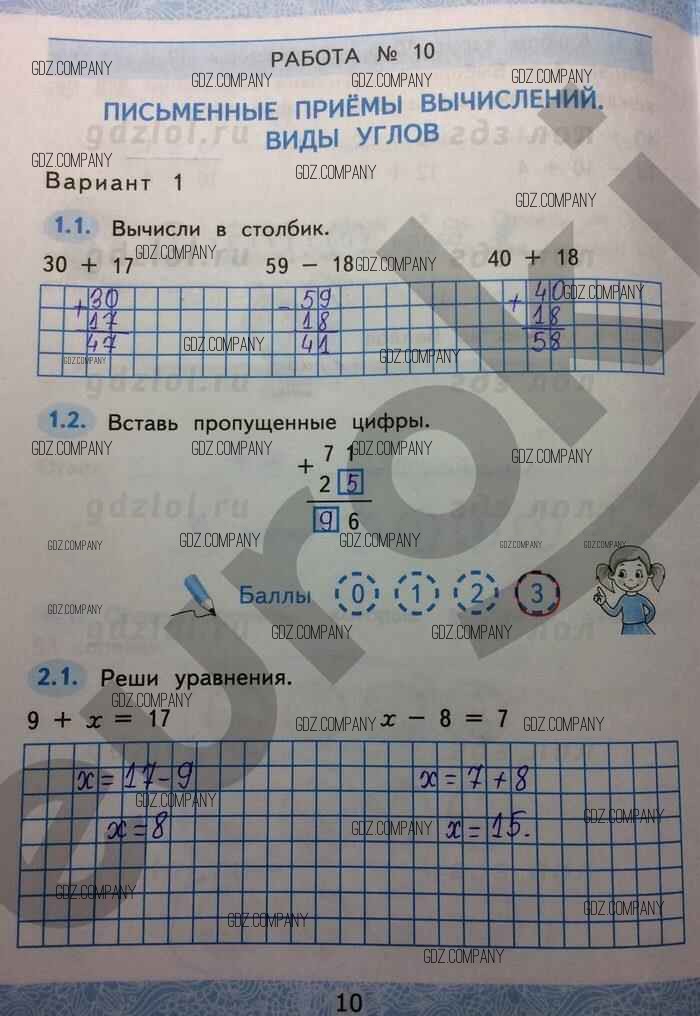 РАБОТА № 10
GDZ.COMPANY GDZ.COMPANY GDZ.COMPANY GDZ.COMPANY
ПИСЬМЕННЫЕ ПРИЁМЫ ВЫЧИСЛЕНИЙ.
gdzlol.ru гдз лол
ВИДЫ УГЛОВ
GDZ.COMPANY GDZ.COMPANY
Вариант 1
GDZ.COMPANY
1.1. Вычисли в столбик.
GDZ.COMPANY
gdzlol.ru гдз лол
30 + 17 59 − 18 GDZ.COMPANY 40 + 18
+30 −59 +40 GDZ.COMPANY
17 18 18
47 GDZ.COMPANY 41 GDZ.COMPANY 58
GDZ.COMPANY
gdzlol.ru гдз лол
1.2. Вставь пропущенные цифры.
GDZ.COMPANY GDZ.COMPANY + 7 1 GDZ.COMPANY GDZ.COMPANY
2 5
gdzlol.ru гдз лол
9 6
GDZ.COMPANY GDZ.COMPANY GDZ.COMPANY GDZ.COMPANY GDZ.COMPANY
Баллы 0 1 2 3
GDZ.COMPANY
GDZ.COMPANY GDZ.COMPANY
euroki
2.1. Реши уравнения.
GDZ.COMPANY
9 + x = 17 GDZ.COMPANY x − 8 = 7 GDZ.COMPANY
x = 17 − 9 x = 7 + 8
GDZ.COMPANY GDZ.COMPANY
x = 8 GDZ.COMPANY x = 15.
GDZ.COMPANY GDZ.COMPANY
GDZ.COMPANY
GDZ.COMPANY
10